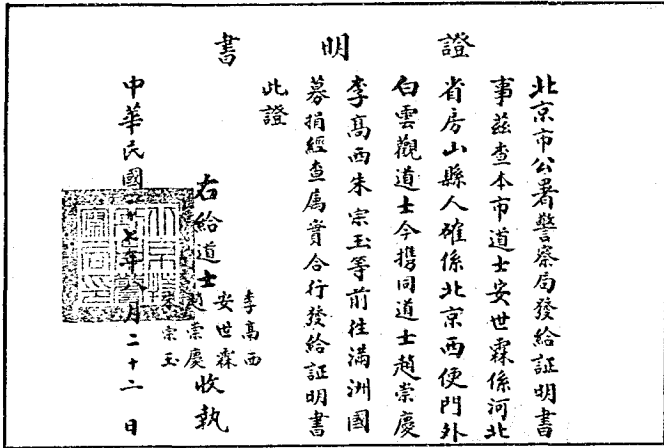 證明書
北京市公署警察局發給証明書
事茲查本市道士安世霖係河北
省房山縣人確係北京西便門外
白雲觀道士今携同道士趙崇慶
李高西朱宗玉等前往滿洲國
募捐經查屬實合行發給証明書
此證
右給道士
李高西
安世霖
趙崇慶
朱宗玉
收執
中華民國廿七年八月二十二日